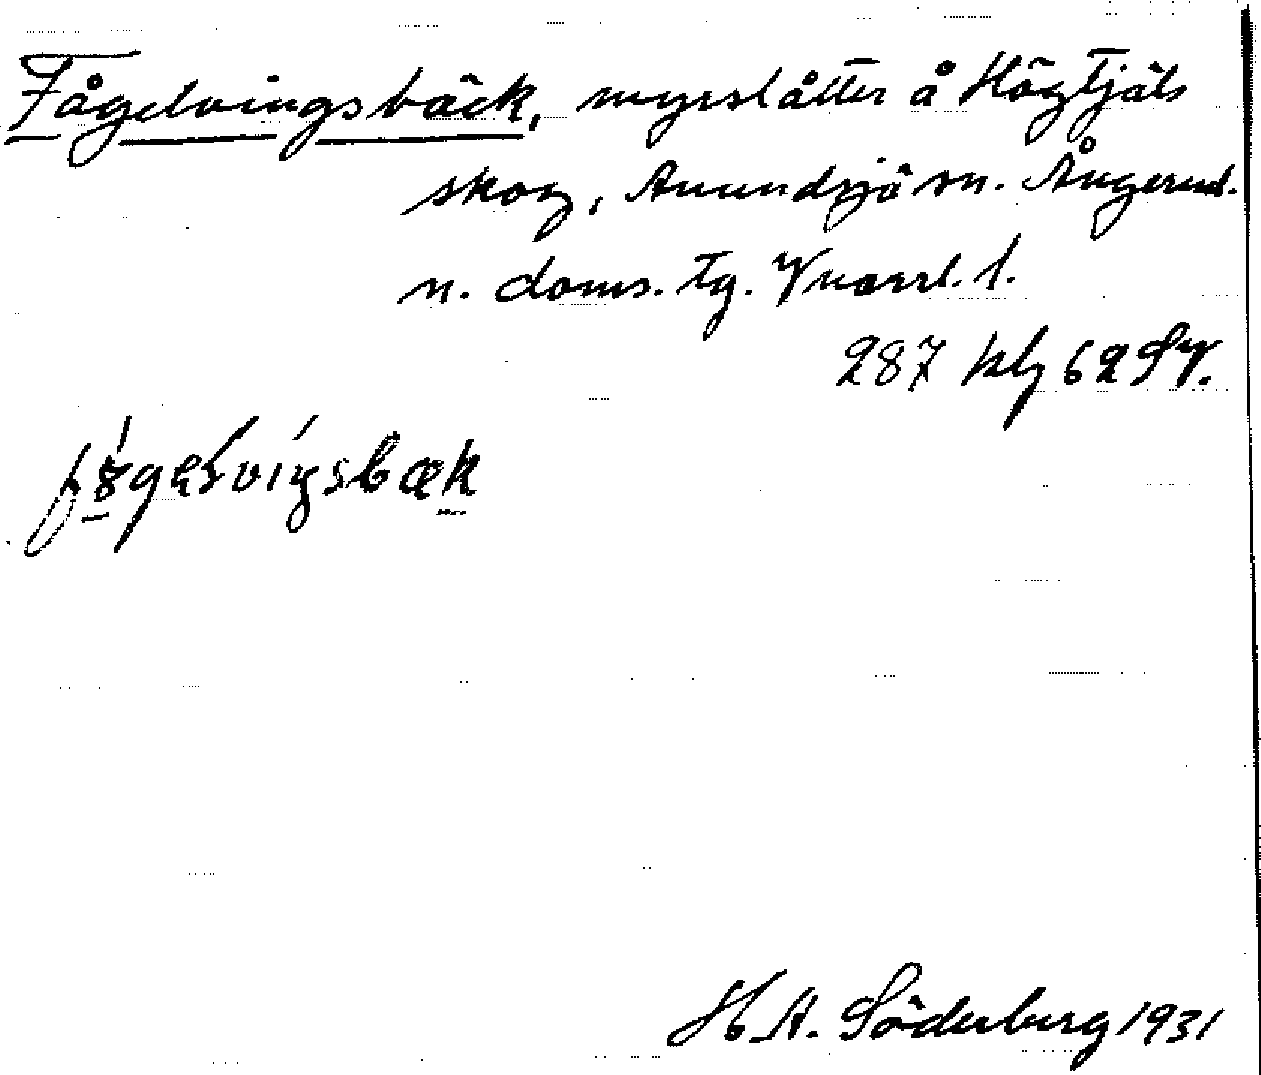 Fågelvingsbäck, myrslåtter å Högtjäls
skog, Anundsjö sn. Ångerml.
n. doms. tg. Vnorrl. l.
287 klg 62 SV.
H. A. Söderberg 1931